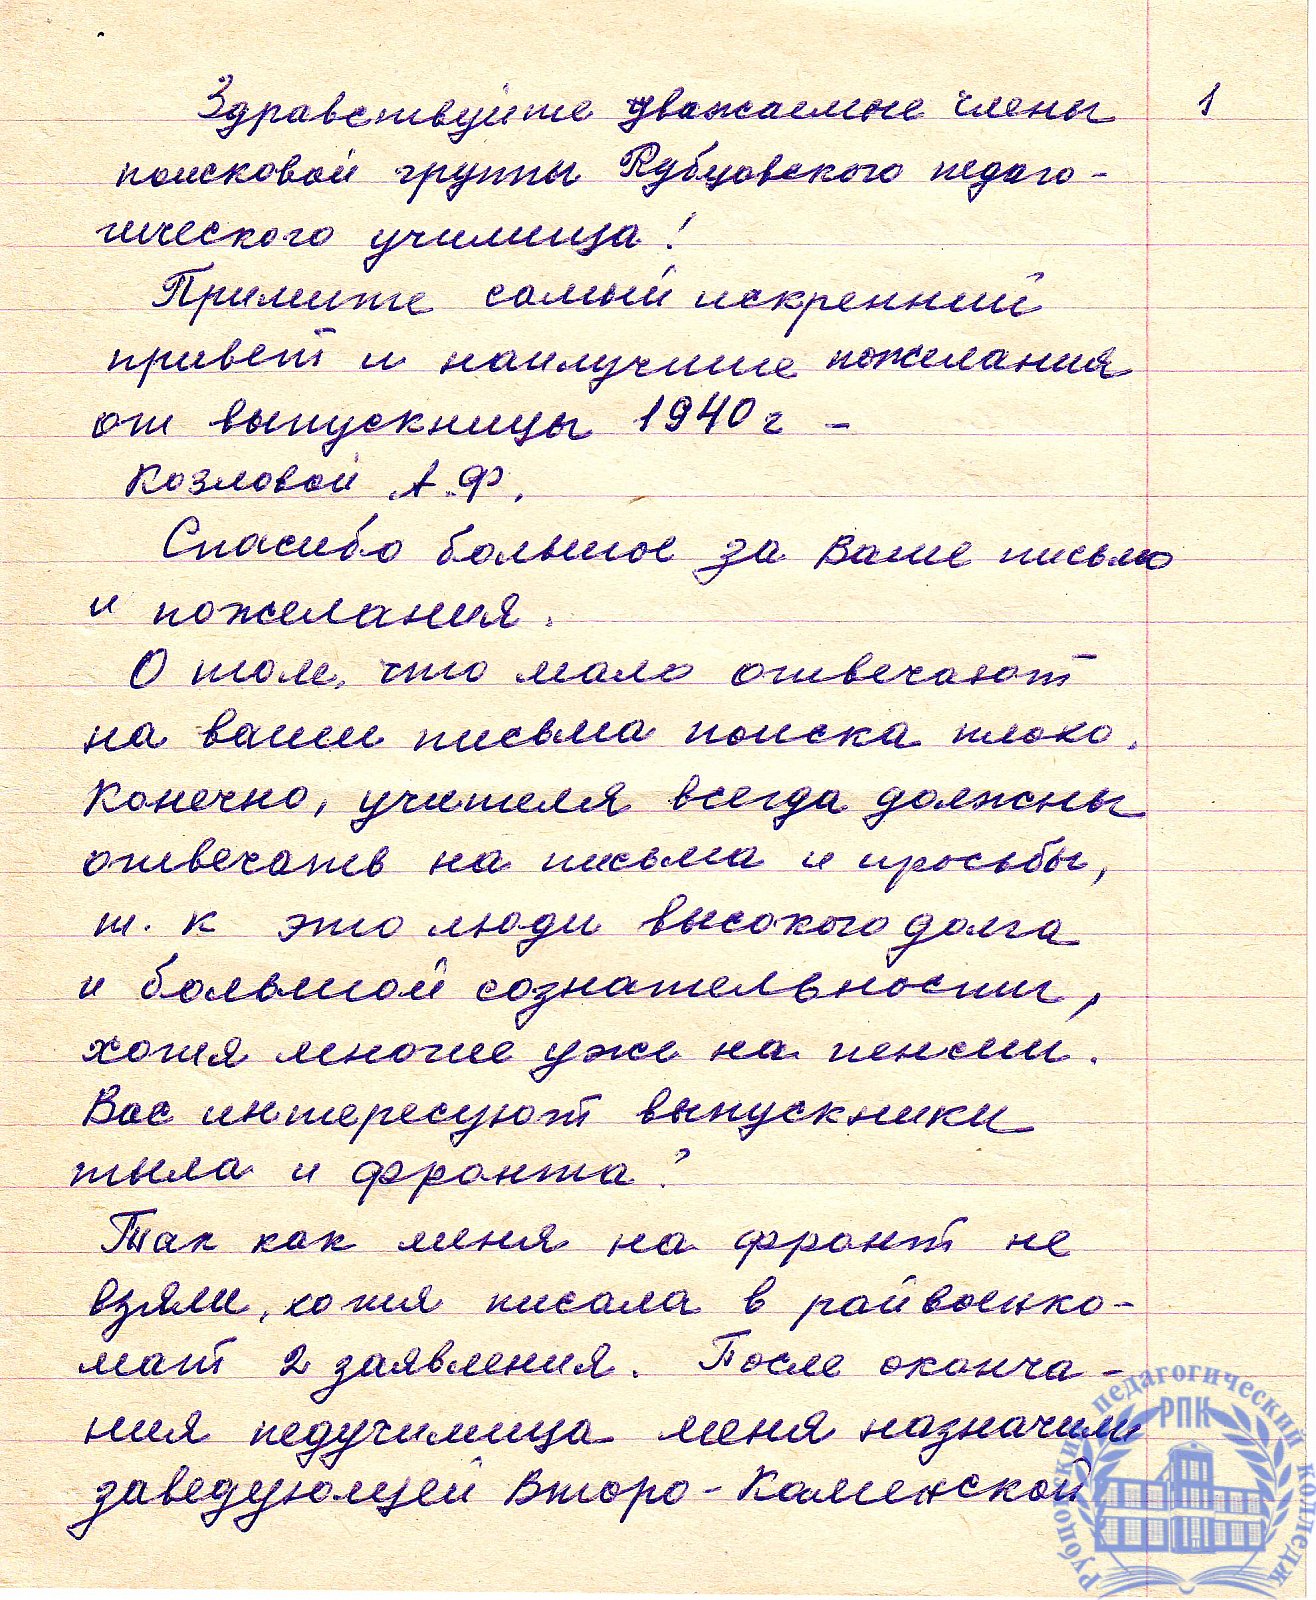 1
Здравствуйте уважаемые члены
поисковой группы Рубцовского педаго-
гического училища!
Примите самый искренний
привет и наилучшие пожелания
от выпускницы 1940 г -
Козловой А.Ф.
Спасибо большое за Ваше письмо
и пожелания.
О том, что мало отвечают
на ваши письма поиска плохо.
Конечно, учителя всегда должны
отвечать на письма и просьбы,
т. к это люди высокого долга
и большой сознательности,
хотя многие уже на пенсии.
Вас интересуют выпускники
тыла и фронта?
Так как меня на фронт не
взяли, хотя писала в райвоенко-
мат 2 заявления. После оконча-
ния педучилища меня назначили
заведующей Второ-Каменской
Рубцовский педагогический колледж
РПК